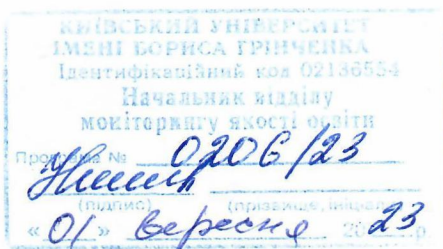 КИЇВСЬКИЙ УНІВЕРСИТЕТ
ІМЕНІ БОРИСА ГРІНЧЕНКА
Ідентифікаційний код 02136554
Начальник відділу
моніторингу якості освіти
Програма № 0206/23
(підпис) (прізвище, ініціали)
« 01 » вересня 2023 р.